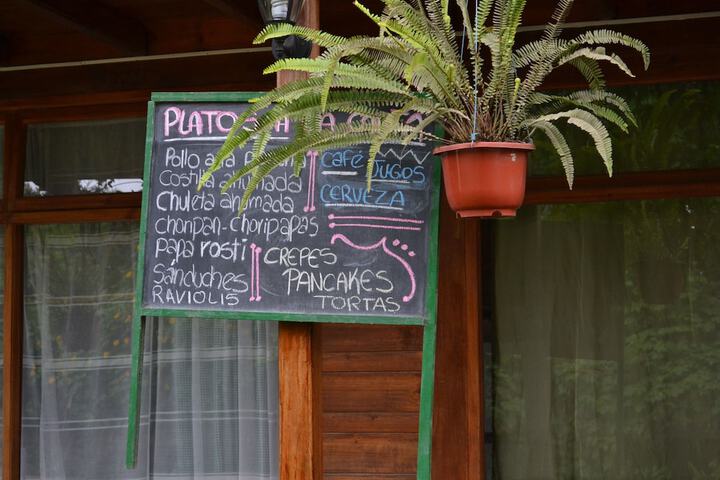 PLATOS A LA
Pollo a la
Costilla ahumada
Chuleta ahumada
choripan - choripapas
papa rosti
Sanduches
RAVIOLIS
Café JUGOS
CERVEZA
CREPES
PANCAKES
TORTAS